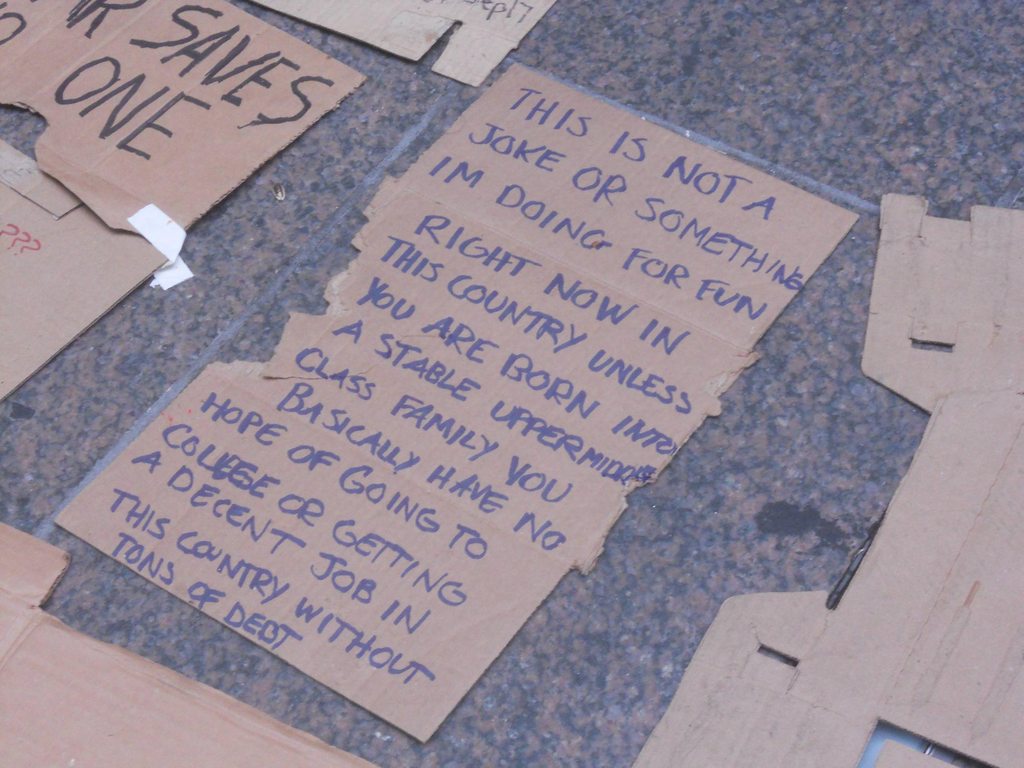 Sep17
SAVES
ONE
???
THIS IS NOT A
JOKE OR SOMETHING
IM DOING FOR FUN
RIGHT NOW IN
THIS COUNTRY UNLESS
YOU ARE BORN INTO
A STABLE UPPERMIDDLE
CLASS FAMILY YOU
BASICALLY HAVE NO
HOPE OF GOING TO
COLLEGE OR GETTING
A DECENT JOB IN
THIS COUNTRY WITHOUT
TONS OF DEBT